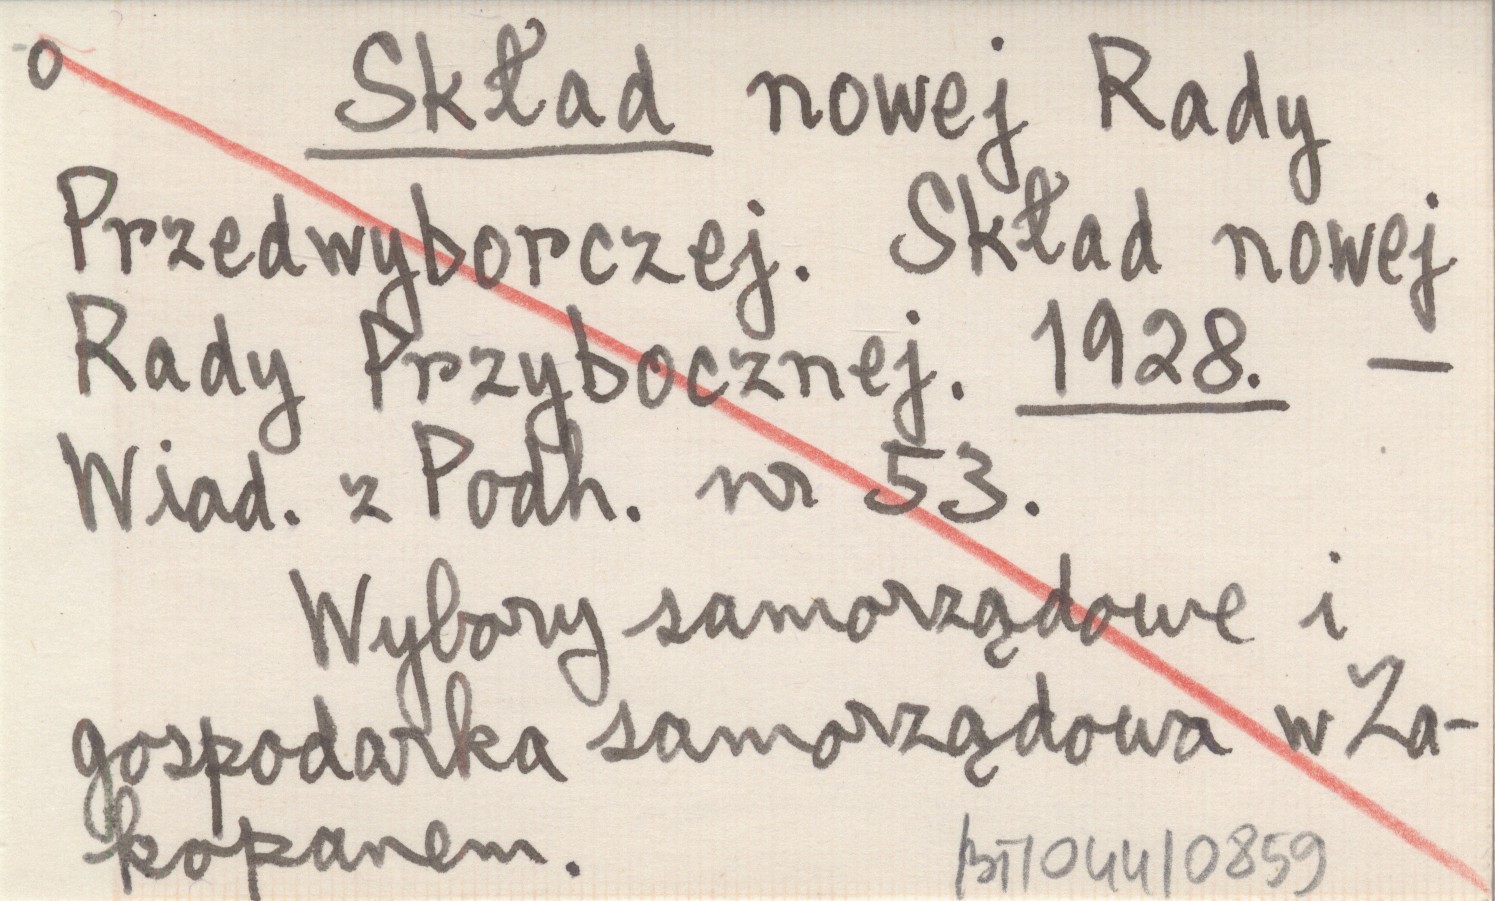 o Skład nowej Rady
Przedwyborczej. Skład nowej
Rady Przybocznej. 1928. —
Wiad. z Podh. nr 53.
Wybory samorządowe i
gospodarka samorządowa w Za-
kopanem.
BT/044/0859